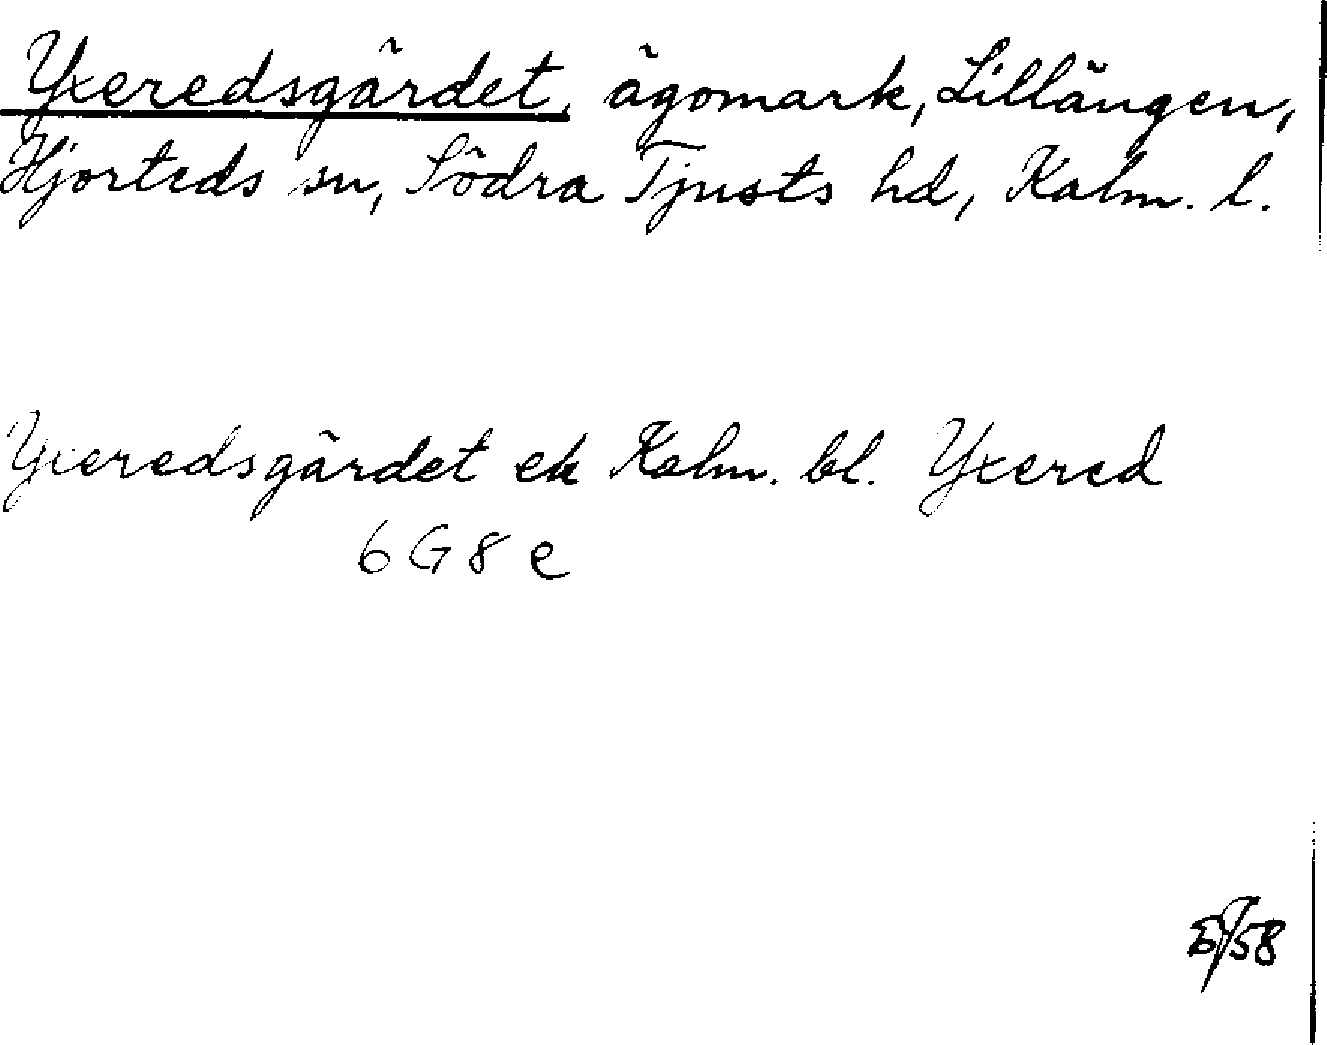 Yxeredsgärdet, ägomark, Lillängen,
Hjorteds sn, Södra Tjusts hd, Kalm. l.
Yxeredsgärdet ek Kalm. bl. Yxered
6 G 8 e
58